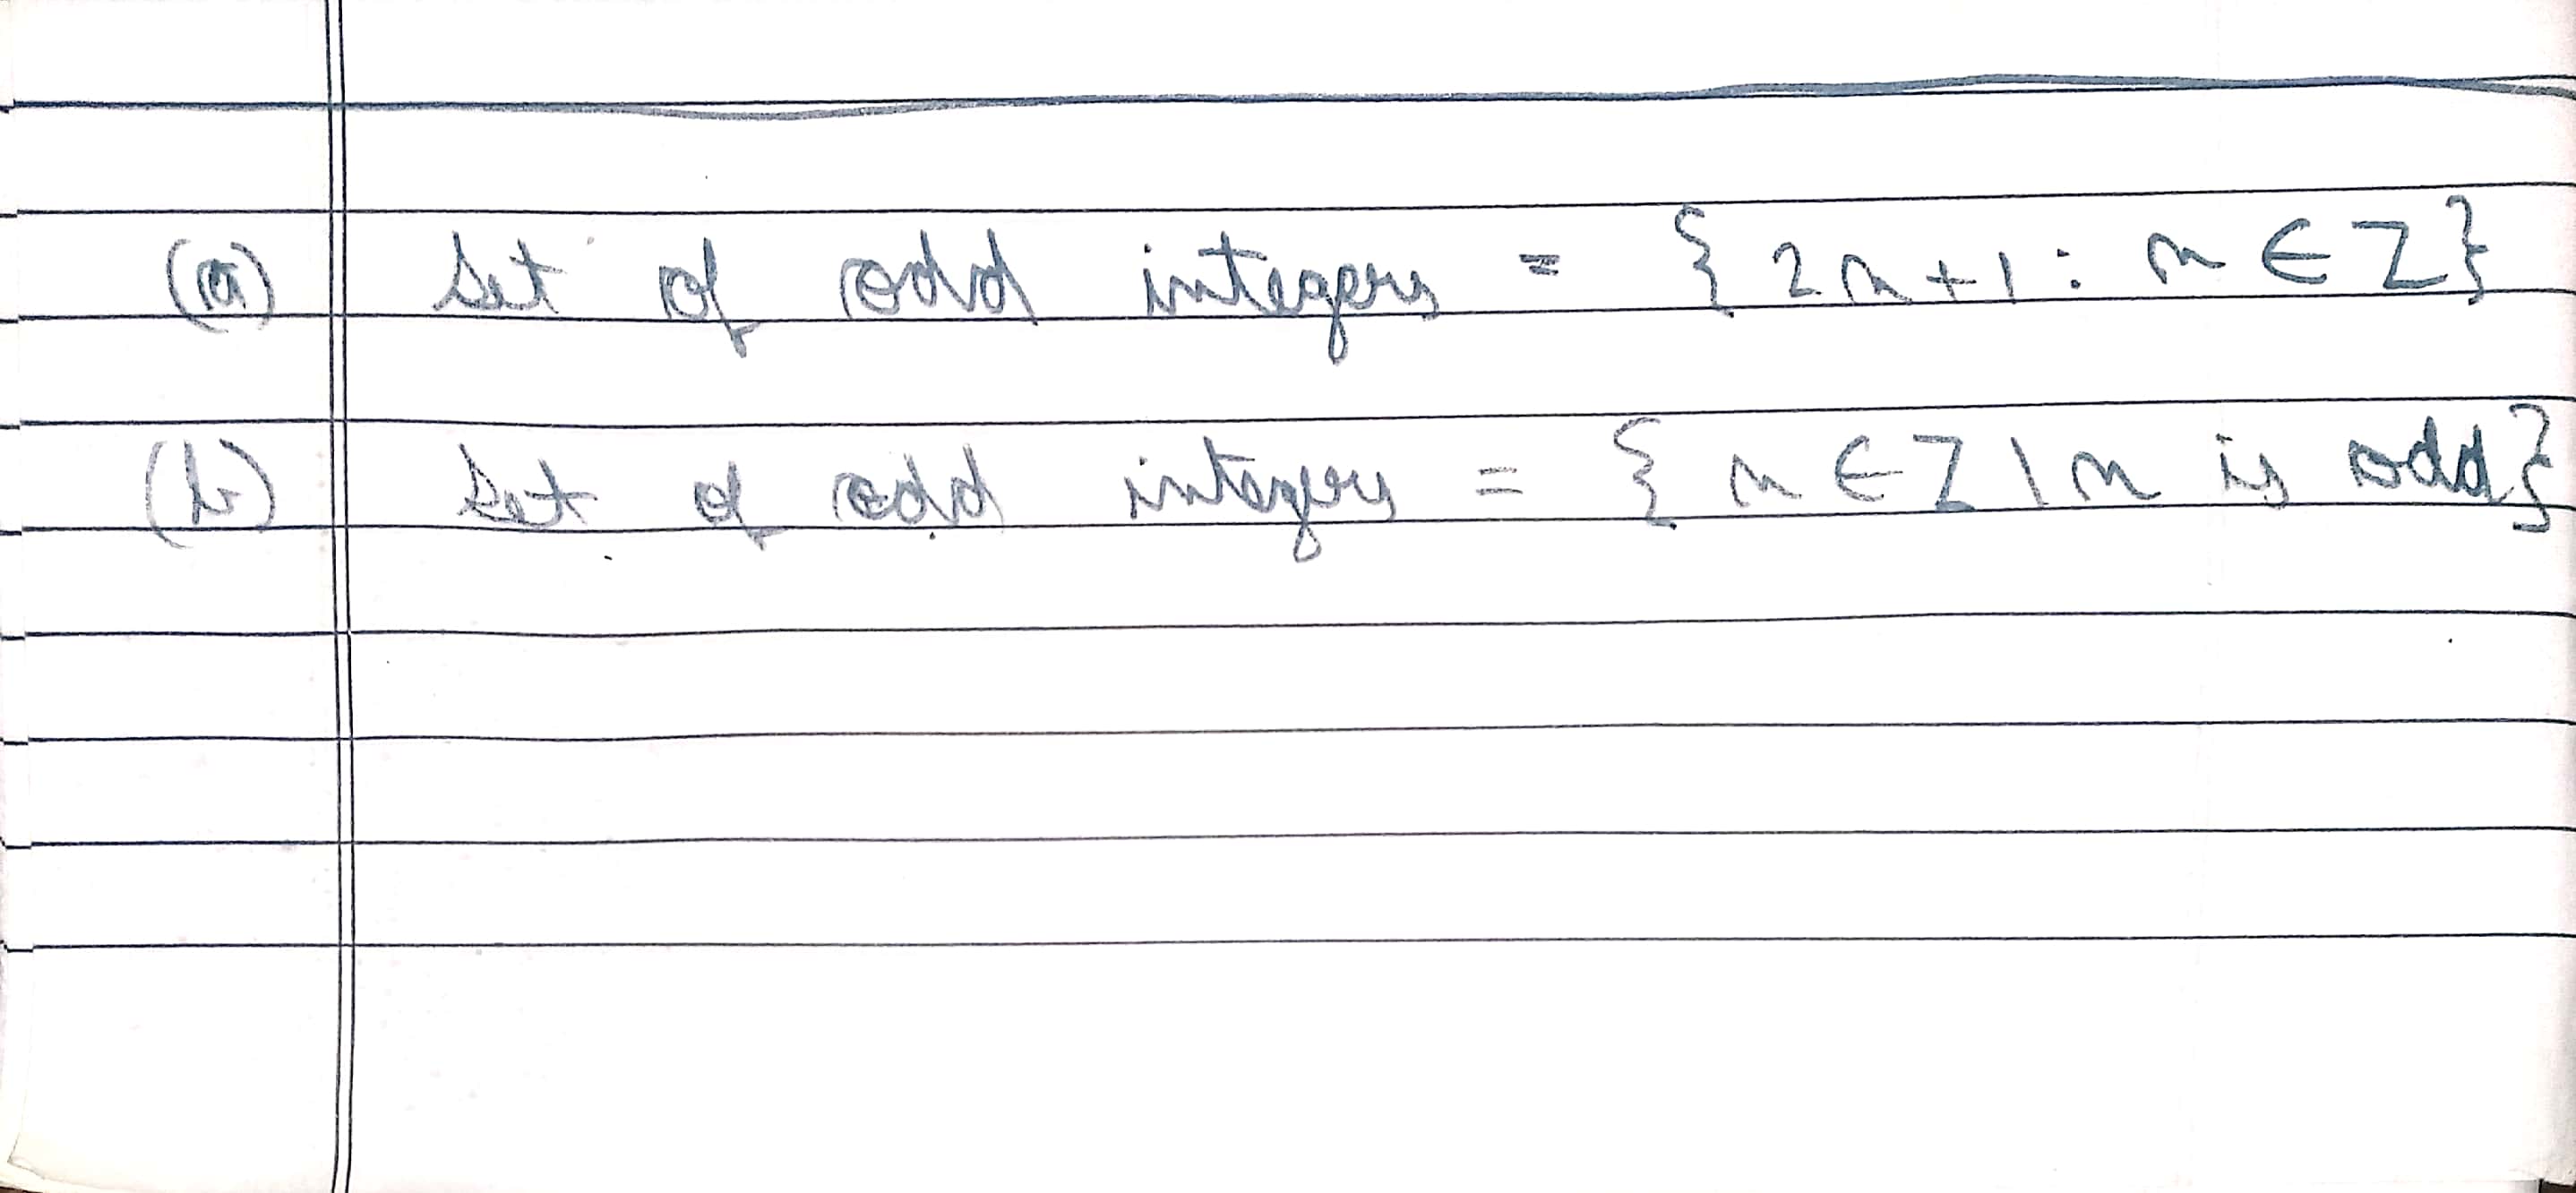 (a) Set of odd integers = { 2n+1 : n ∈ Z}
(b) Set of odd integers = { n ∈ Z | n is odd}